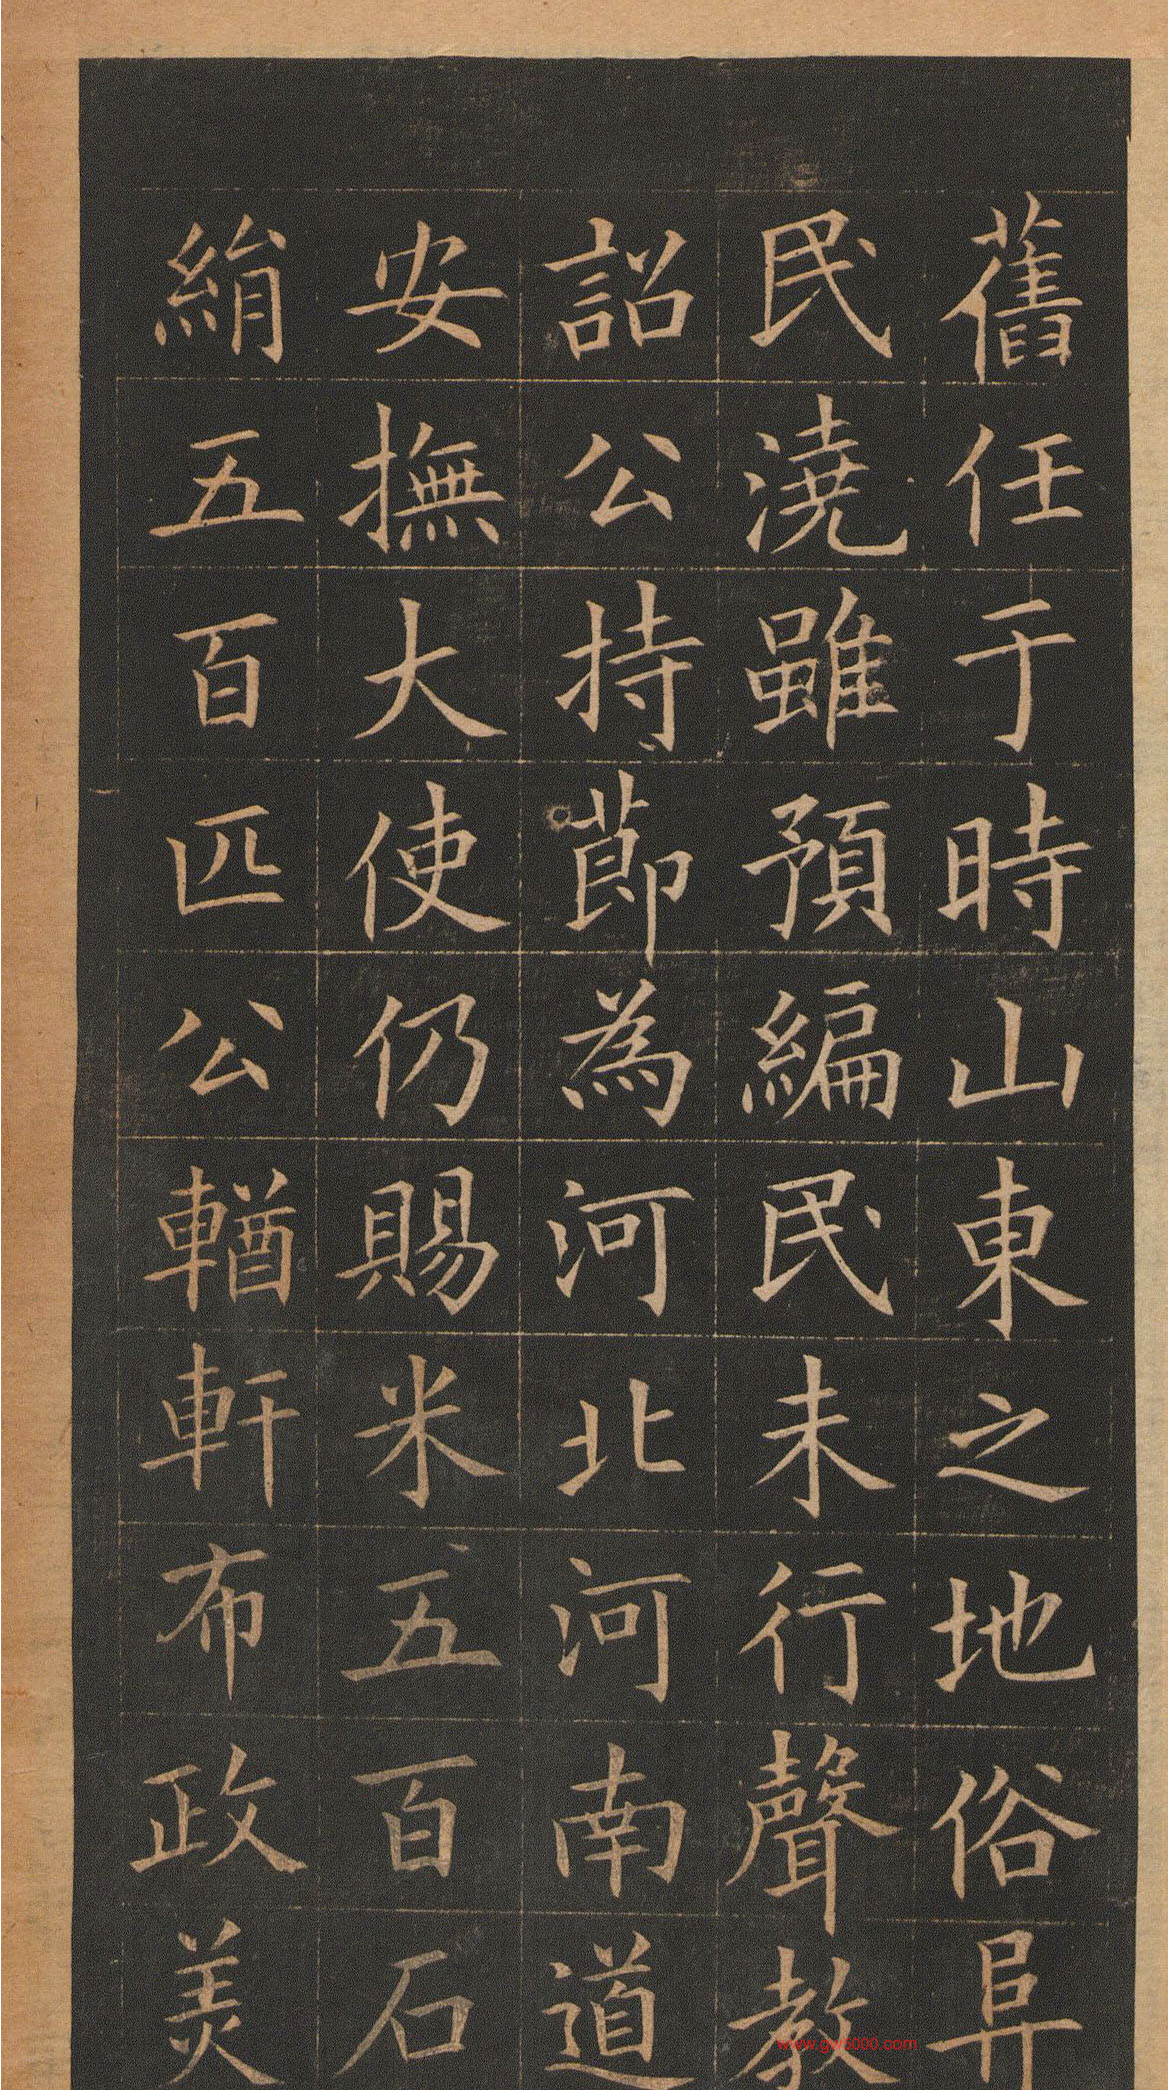 舊任于時山東之地俗阜
民澆雖預編民未行聲教
詔公持莭為河北河南道
安撫大使仍賜米五百石
絹五百匹公輶軒布政美
www.gw5000.com